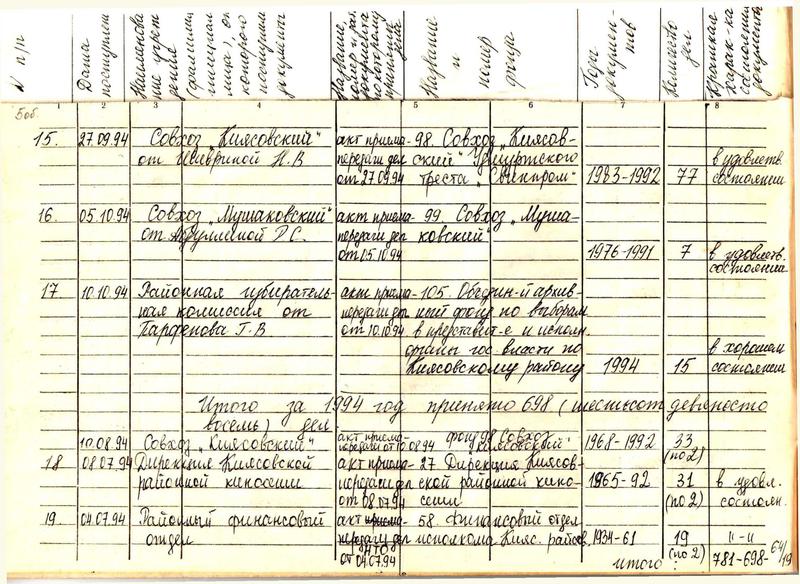 № п/п
Дата поступлен
Наименова
ние учреж
дения
(фамилия,
инициалы
лица), от
которого
поступили
документы
Название,
номер и дата
документа
по которому
приняты
дела
Название
и
номер
фонда
Годы
докумен-
тов
Количество
дел
Краткая
харак-ка
состояния
документов
5 об.
1 2 3 4 5 6 7 8
15. 27.09.94 Совхоз „Киясовский" акт приема- 98. Совхоз „Киясов-
от Ишевриной Н.В передачи дел ский" Удмуртского в удовлетв.
от 27.09.94 треста „Свинпром" 1983-1992 77 состоянии
16. 05.10.94 Совхоз „Мушаковский" акт приема- 99 Совхоз „Муша-
от Абдуллиной Р.С. передачи дел ковский"
от 05.10.94 1976-1991 7 в удовлетв.
состоянии
17 10.10.94 Районная избиратель- акт приема- 105. Объедин-й архив-
ная комиссия от передачи дел ный фонд по выборам
Парфенова Г.В от 10.10.94 в представит-е и исполн.
органы гос. власти по в хорошем
Киясовскому району 1994 15 состоянии
Итого за 1994 год принято 698 (шестьсот девяносто
восемь) дел.
10.08.94 Совхоз „Киясовский" акт приема-передачи от 10.08.94 фонд 98 Совхоз „Киясовский" 1968-1992 33
(по 2)
18 08.07.94 Дирекция Киясовской акт приема- 27 Дирекция Киясов-
районной киносети передачи дел ской районной кино- 1965-92 31 в удовл.
от 08.07.94 сети (по 2) состоян.
19. 04.07.94 Районный финансовый акт приема- 58. Финансовый отдел
отдел передачи дел исполкома Кияс. райсов. 1934-61 19 "-"
НТД (по 2)
от 04.07.94 итого: 781-698- 64/19